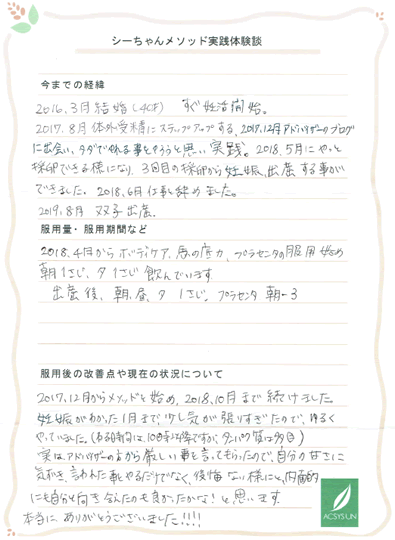 シーちゃんメソッド実践体験談
今までの経緯
2016.3月結婚し(40才) すぐ妊活開始。
2017.8月体外受精にステップアップする。2017.12月アドバイザーのブログ
に出会い、タダでやれる事をやろうと思い実践。2018.5月にやっと
採卵できる様になり、3回目の採卵から妊娠、出産する事が
できました。2018.6月仕事を辞めました。
2019.8月 双子出産。
服用量・服用期間など
2018.4月からボディケア、 の 力、プラセンタの服用始め
朝1さじ、夕1さじ飲んでいます。
出産後、朝、昼、夕 1さじ。プラセンタ 朝-3
服用後の改善点や現在の状況について
2017.12月からメソッドを始め、2018.10月まで続けました。
妊娠がわかった1月まで、少し気が張りすぎたので、ゆるく
やっていました。( タンパク質は 多目)
実は、アドバイザーの方から厳しい事を言ってもらったので、自分の甘さに
気がき、言われた事をやるだけでなく、後悔ない様にと、内面的
にも自分と向き合えたのも良かったかな!と思います。
本当に、ありがとうございました!!!!
ACSYSUN